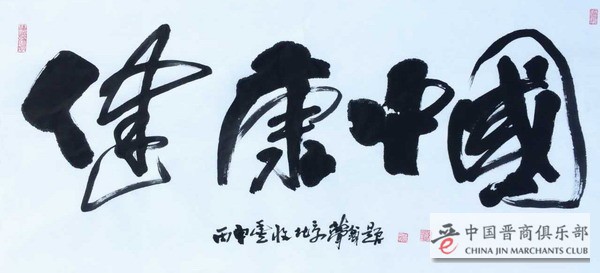 健康中國
丙申金秋北京題
晋 中国晋商俱乐部
CHINA JIN MERCHANTS CLUB